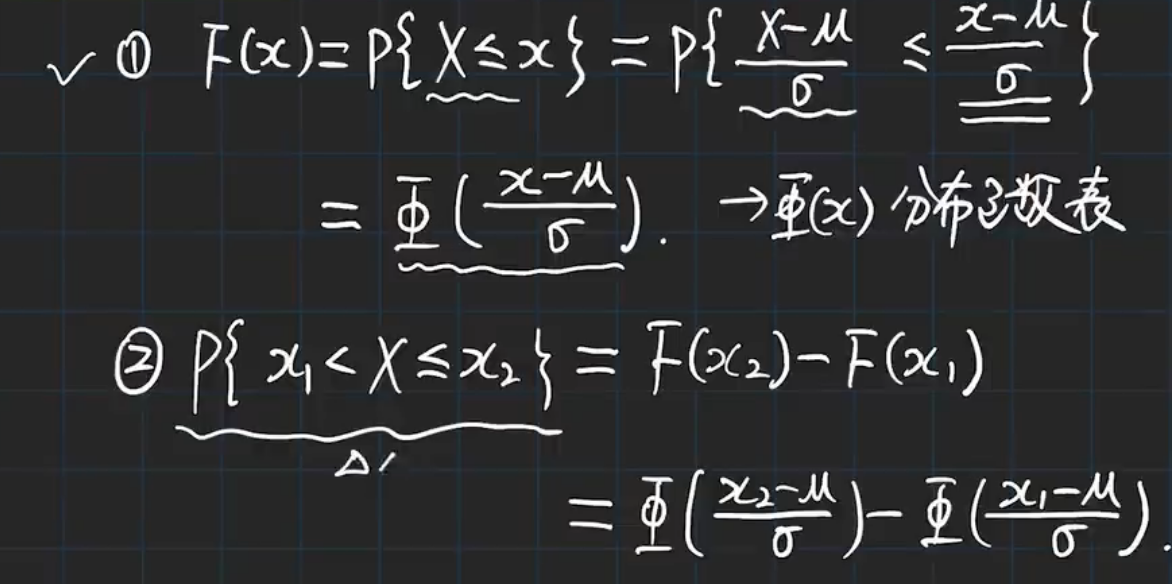 ✓ ① F(x)=P{X≤x}=P{\frac{X-μ}{σ} ≤ \frac{x-μ}{σ}}
=Φ(\frac{x-μ}{σ}). →Φ(x) 分布函数表
② P{x₁<X≤x₂}=F(x₂)-F(x₁)
△
=Φ(\frac{x₂-μ}{σ})-Φ(\frac{x₁-μ}{σ}).